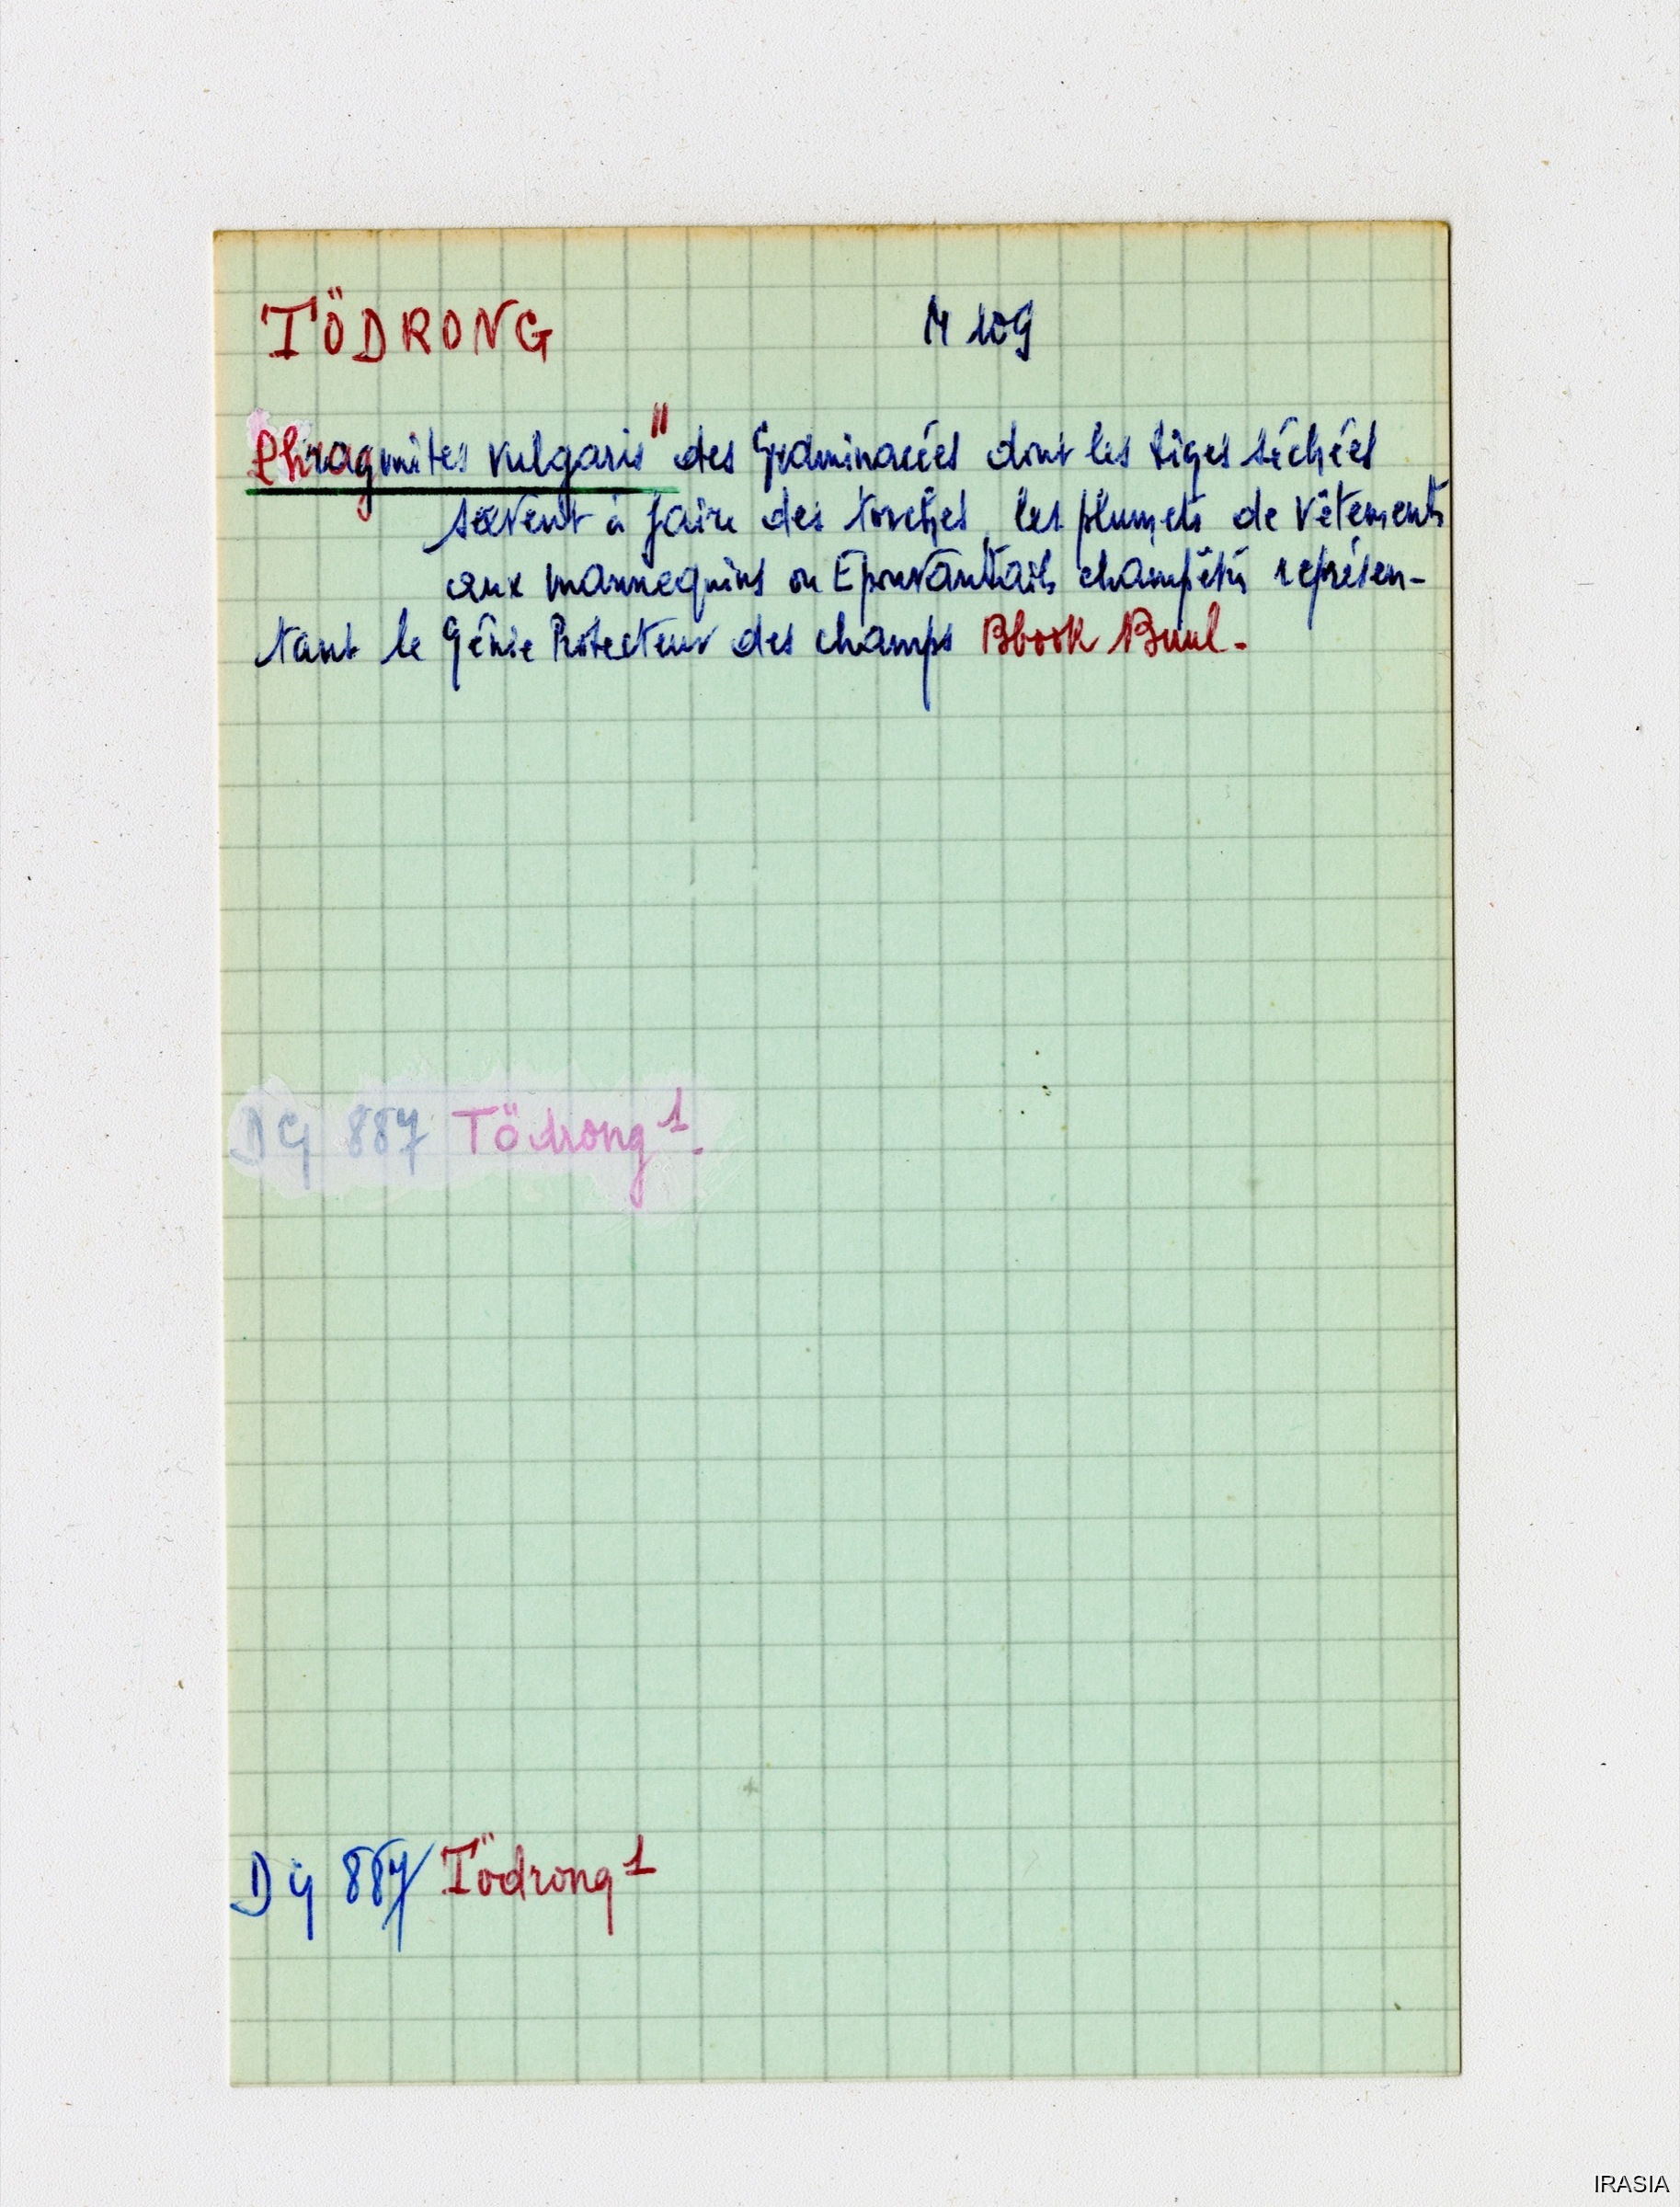 TÖDRONG M 109
Phragmites vulgaris" des Graminacées dont les tiges séchées
servent à faire des torches, les plumets de vêtements
aux mannequins ou Epouvantails champêtres représen-
tant le Génie Protecteur des champs Bbook Buul-
DG 887 Tödrong 1.
DG 887 Tödrong 1
IRASIA